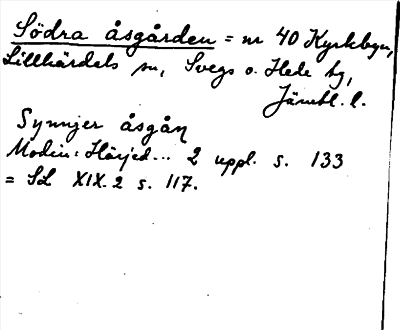 Södra åsgården = nr 40 Kyrkbyn,
Lillhärdals sn, Svegs o. Hede tg,
Jämtl. l.
Synnjer åsgån
Modin: Härjed... 2 uppl. s. 133
= SL XIX. 2 s. 117.